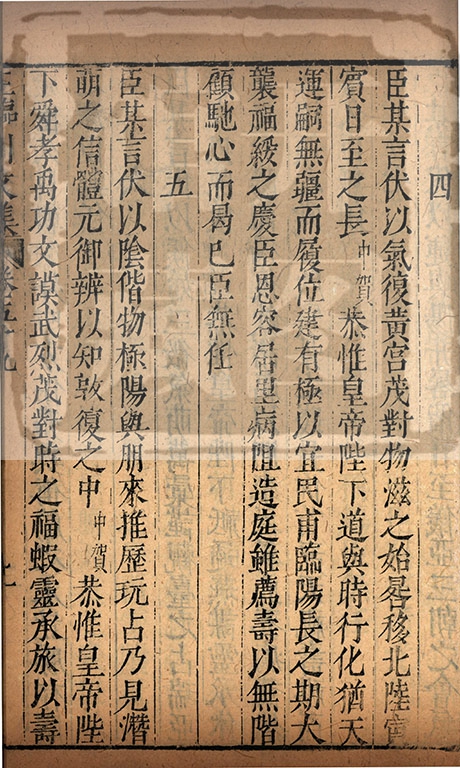 四
臣某言伏以氣復黃宮茂對物滋之始晷移北陸寅
賓日至之長中賀恭惟皇帝陛下道與時行化猶天
運嗣無疆而履位建有極以宜民甫臨陽長之期大
襲福綏之慶臣恩容居里病阻造庭雖薦壽以無階
顧馳心而曷已臣無任
五
臣某言伏以陰偕物極陽與朋來推歷玩占乃見潛
萌之信體元御辨以知敦復之中中賀恭惟皇帝陛
下舜孝禹功文謨武烈茂對時之福嘏靈承旅以壽
王臨川文集卷五十九